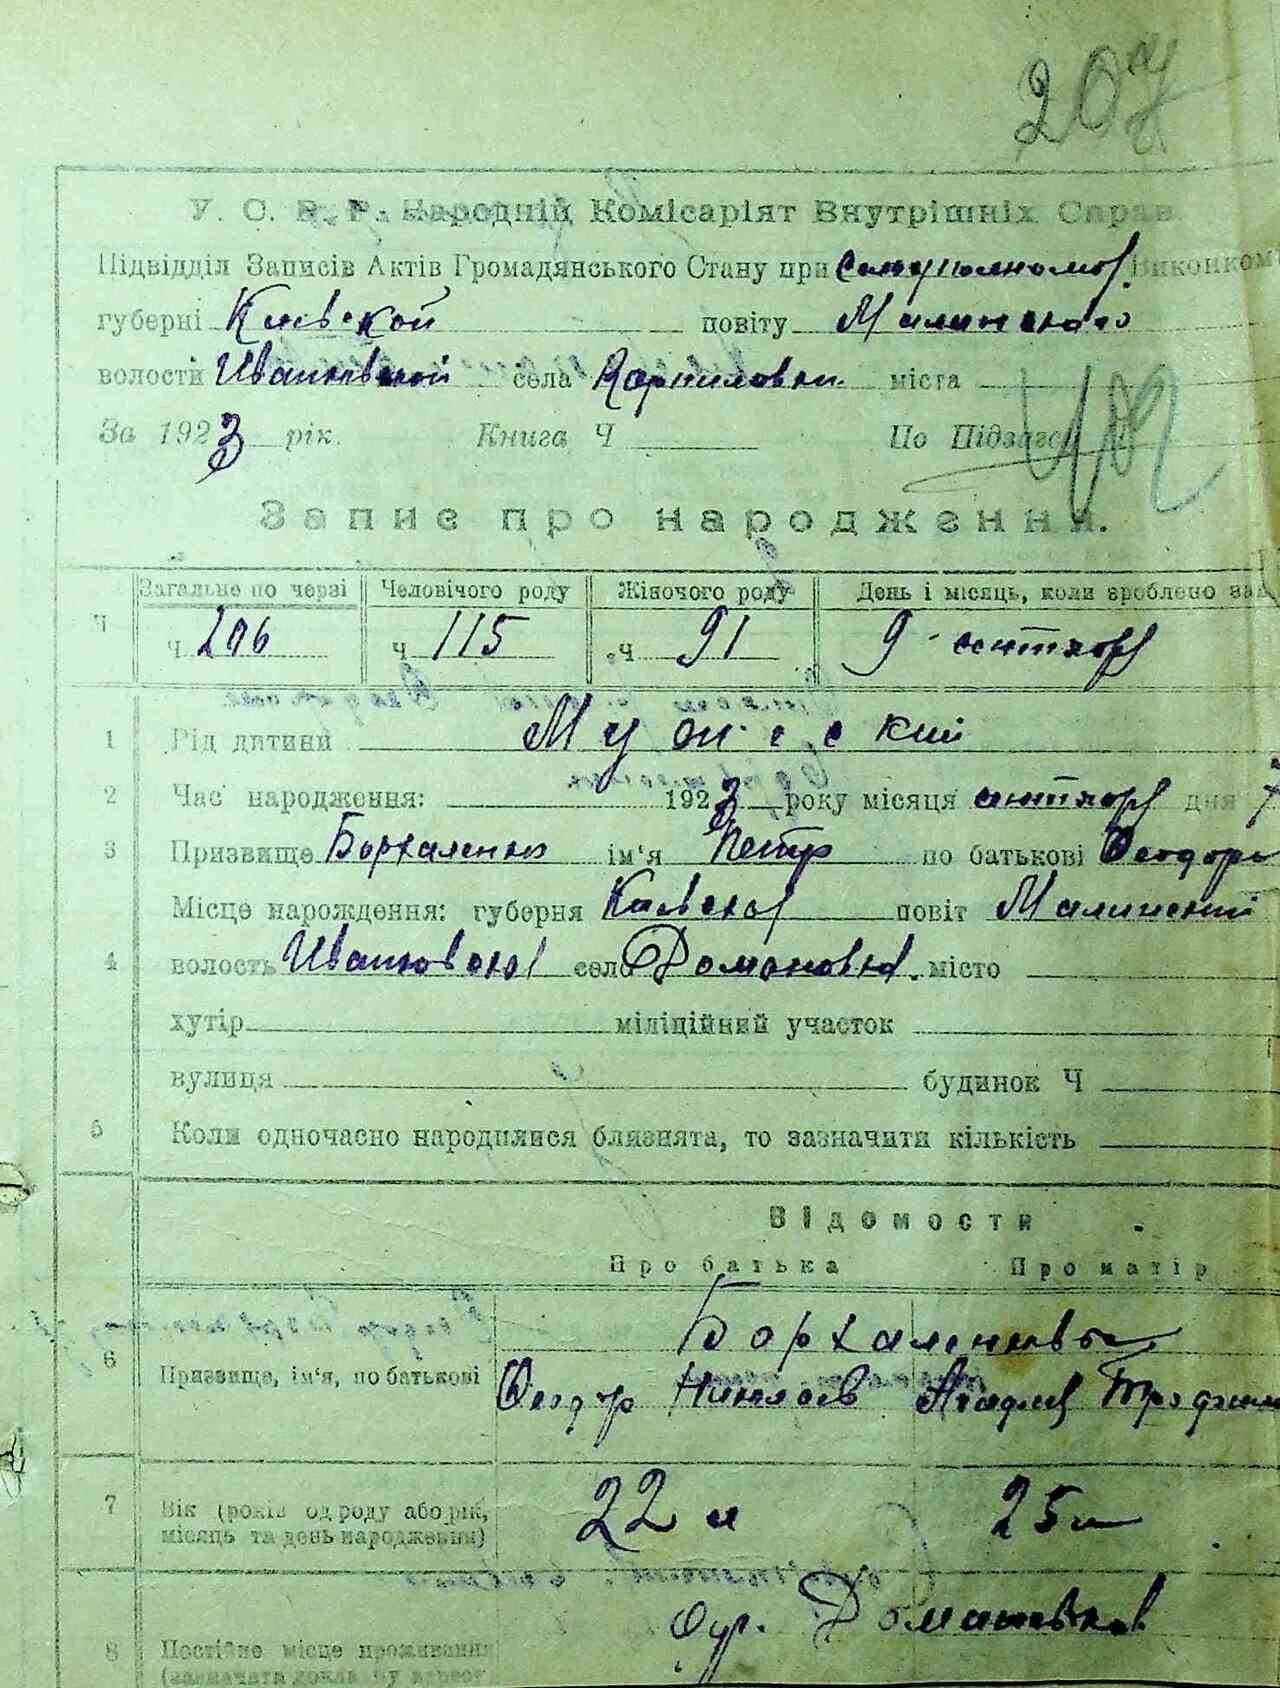 207
У. С. Р. Р. Народній Комісаріят Внутрішніх Справ
Підвідділ Записів Актів Громадянського Стану при Виконком
губерні Киевской повіту Малинского
волости Иванковской села Карпиловки міста
За 1923 рік. Книга Ч По Підзаге
Запис про народження.
Загальне по черзі Человічого роду Жіночого роду День і місяць, коли зроблено зап
Ч ч 206 ч 115 ч 91 9 сентября
1 Рід дитини Мужеский
2 Час народження: 1923 року місяця сентября дня 7
3 Призвище Борхаленко ім'я Петр по батькові Феодоро
Місце нарождення: губерня Киевской повіт Малинский
4 волость Иванковской село Домановка місто
хутір міліційний участок
вулиця будинок Ч
5 Коли одночасно народилися близнята, то зазначити кількість
Відомости
Про батька Про матір
Борхаленковы
6 Призвище, ім'я, по батькові Феодор Николаев
7 Вік (років од роду або рік, 22 л 25 л
місяць та день народження)
8 Постійне місце проживання